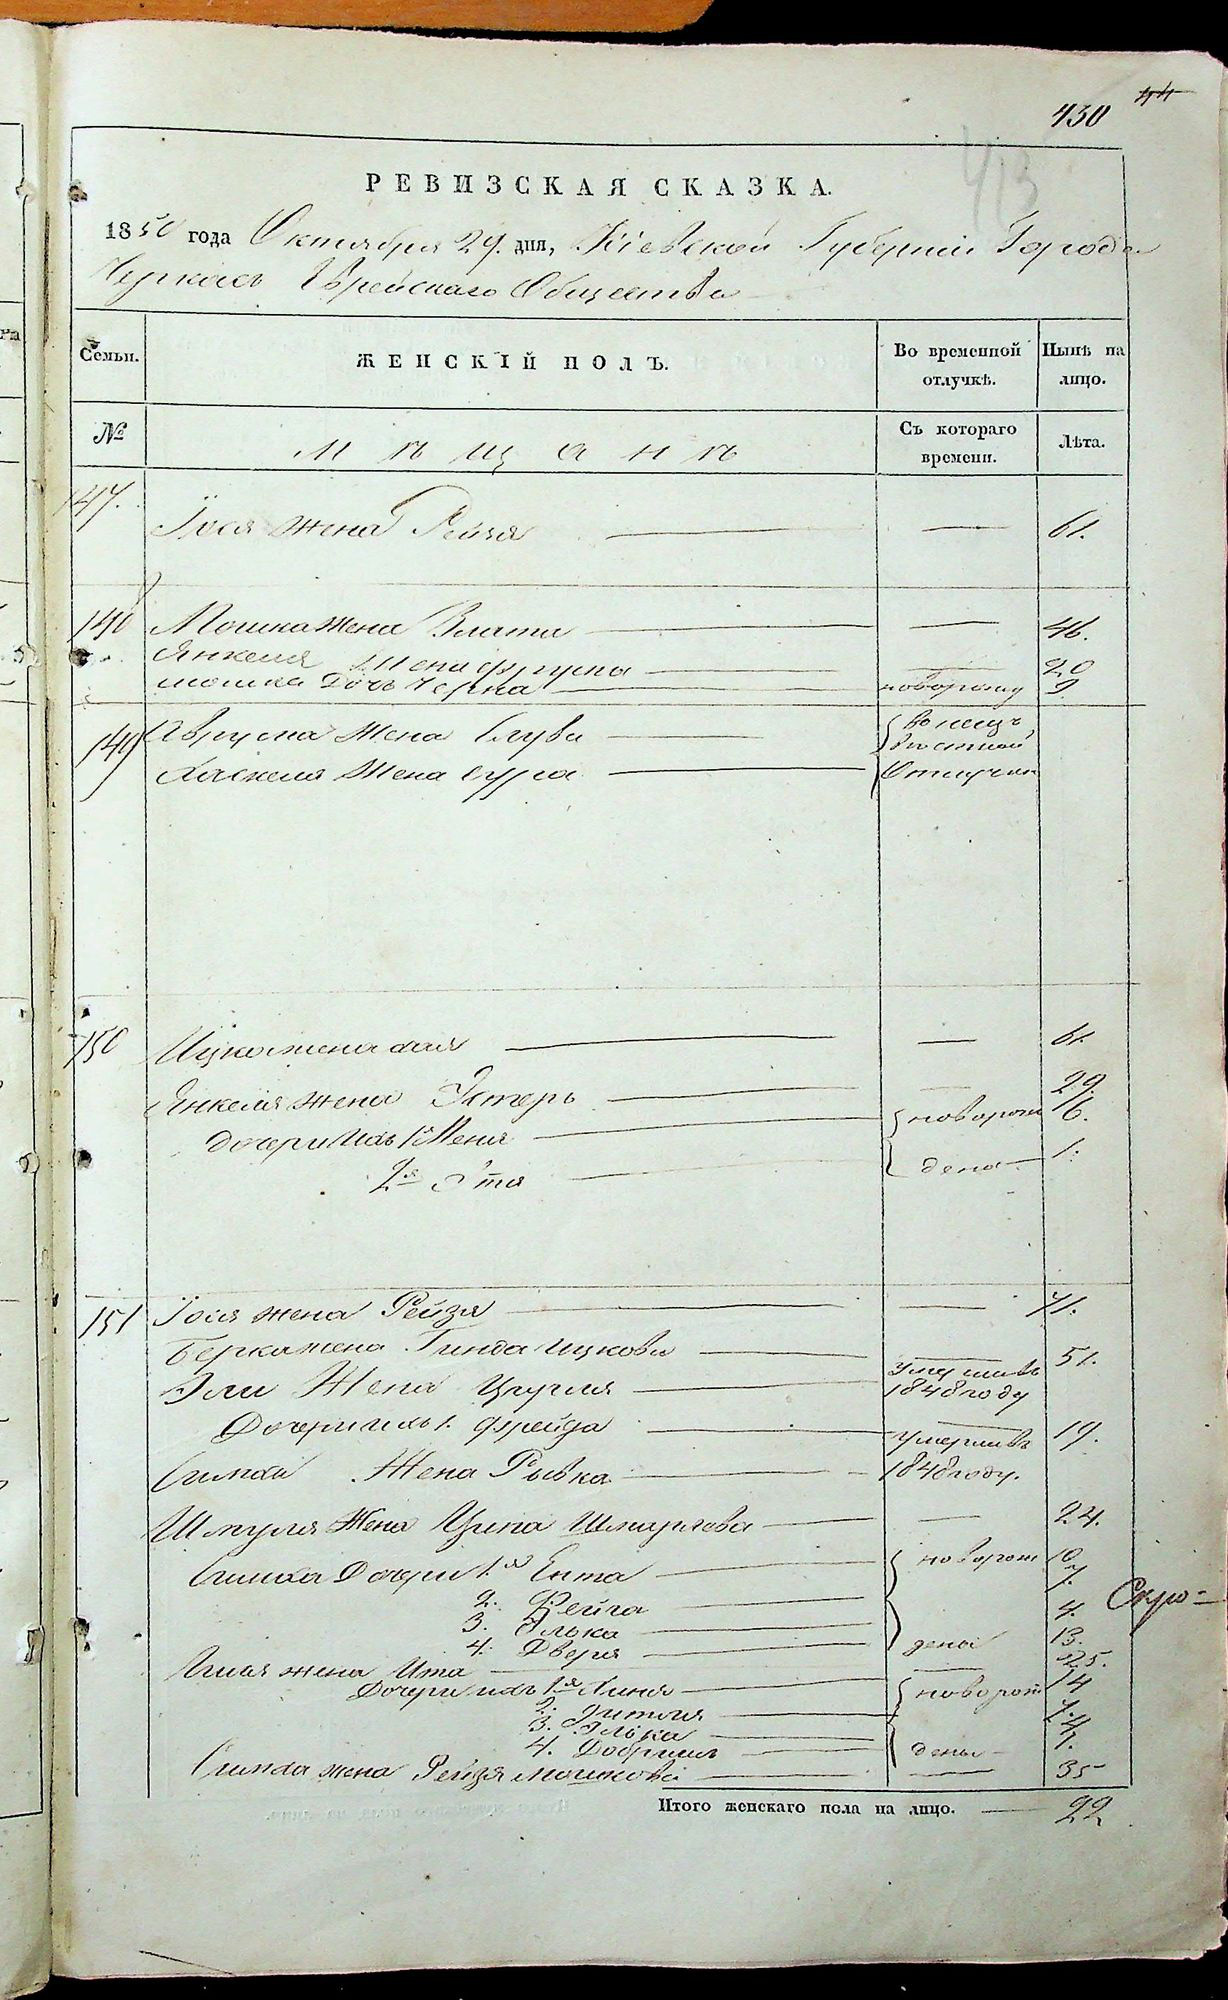 430 44
413
РЕВИЗСКАЯ СКАЗКА.
1850 года Октября 29. дня, Кіевской Губерніи Города
Черкасъ Еврейскаго Общества
Семьи. ЖЕНСКІЙ ПОЛЪ. Во временной отлучкѣ. Нынѣ на лицо.
№ Мѣщанѣ Съ котораго времени. Лѣта.
147. Іося жена Рейзя 61.
148 Мошка Жена Злата 46.
Янкеля Жена Фрума 20
Мошка Дочь Черна новорожд 9.
149 Аврума Жена Слува
Хаскеля Жена Сура Отлучки
150 Ицка жена Хая 61.
Янкеля жена Эстеръ 29.
дочери ихъ 1я Меня новорож 6.
2я Эта дена 1.
151 Іося жена Рейзя 71.
Берка жена Гинда Ицкова 51.
Эли Жена Цируля умершив 1848 году
Дочери ихъ 1. Фрейда 19.
Симха Жена Рывка умершив 1848 году.
Шмуля Жена Ципа Шмарлева 24.
Симха Дочери 1я Ента новорож 10
2. Фейга 7.
3. Элька 4.
4. Дверя дена 13.
жена Ита 25.
Дочери ихъ 1я Ханя новорож 14
2. Гитля 7.
3. Элька 4
4. Добриш дены 1.
Симха жена Рейзя Мошкова 35
Скро=
Итого женскаго пола на лицо. 22